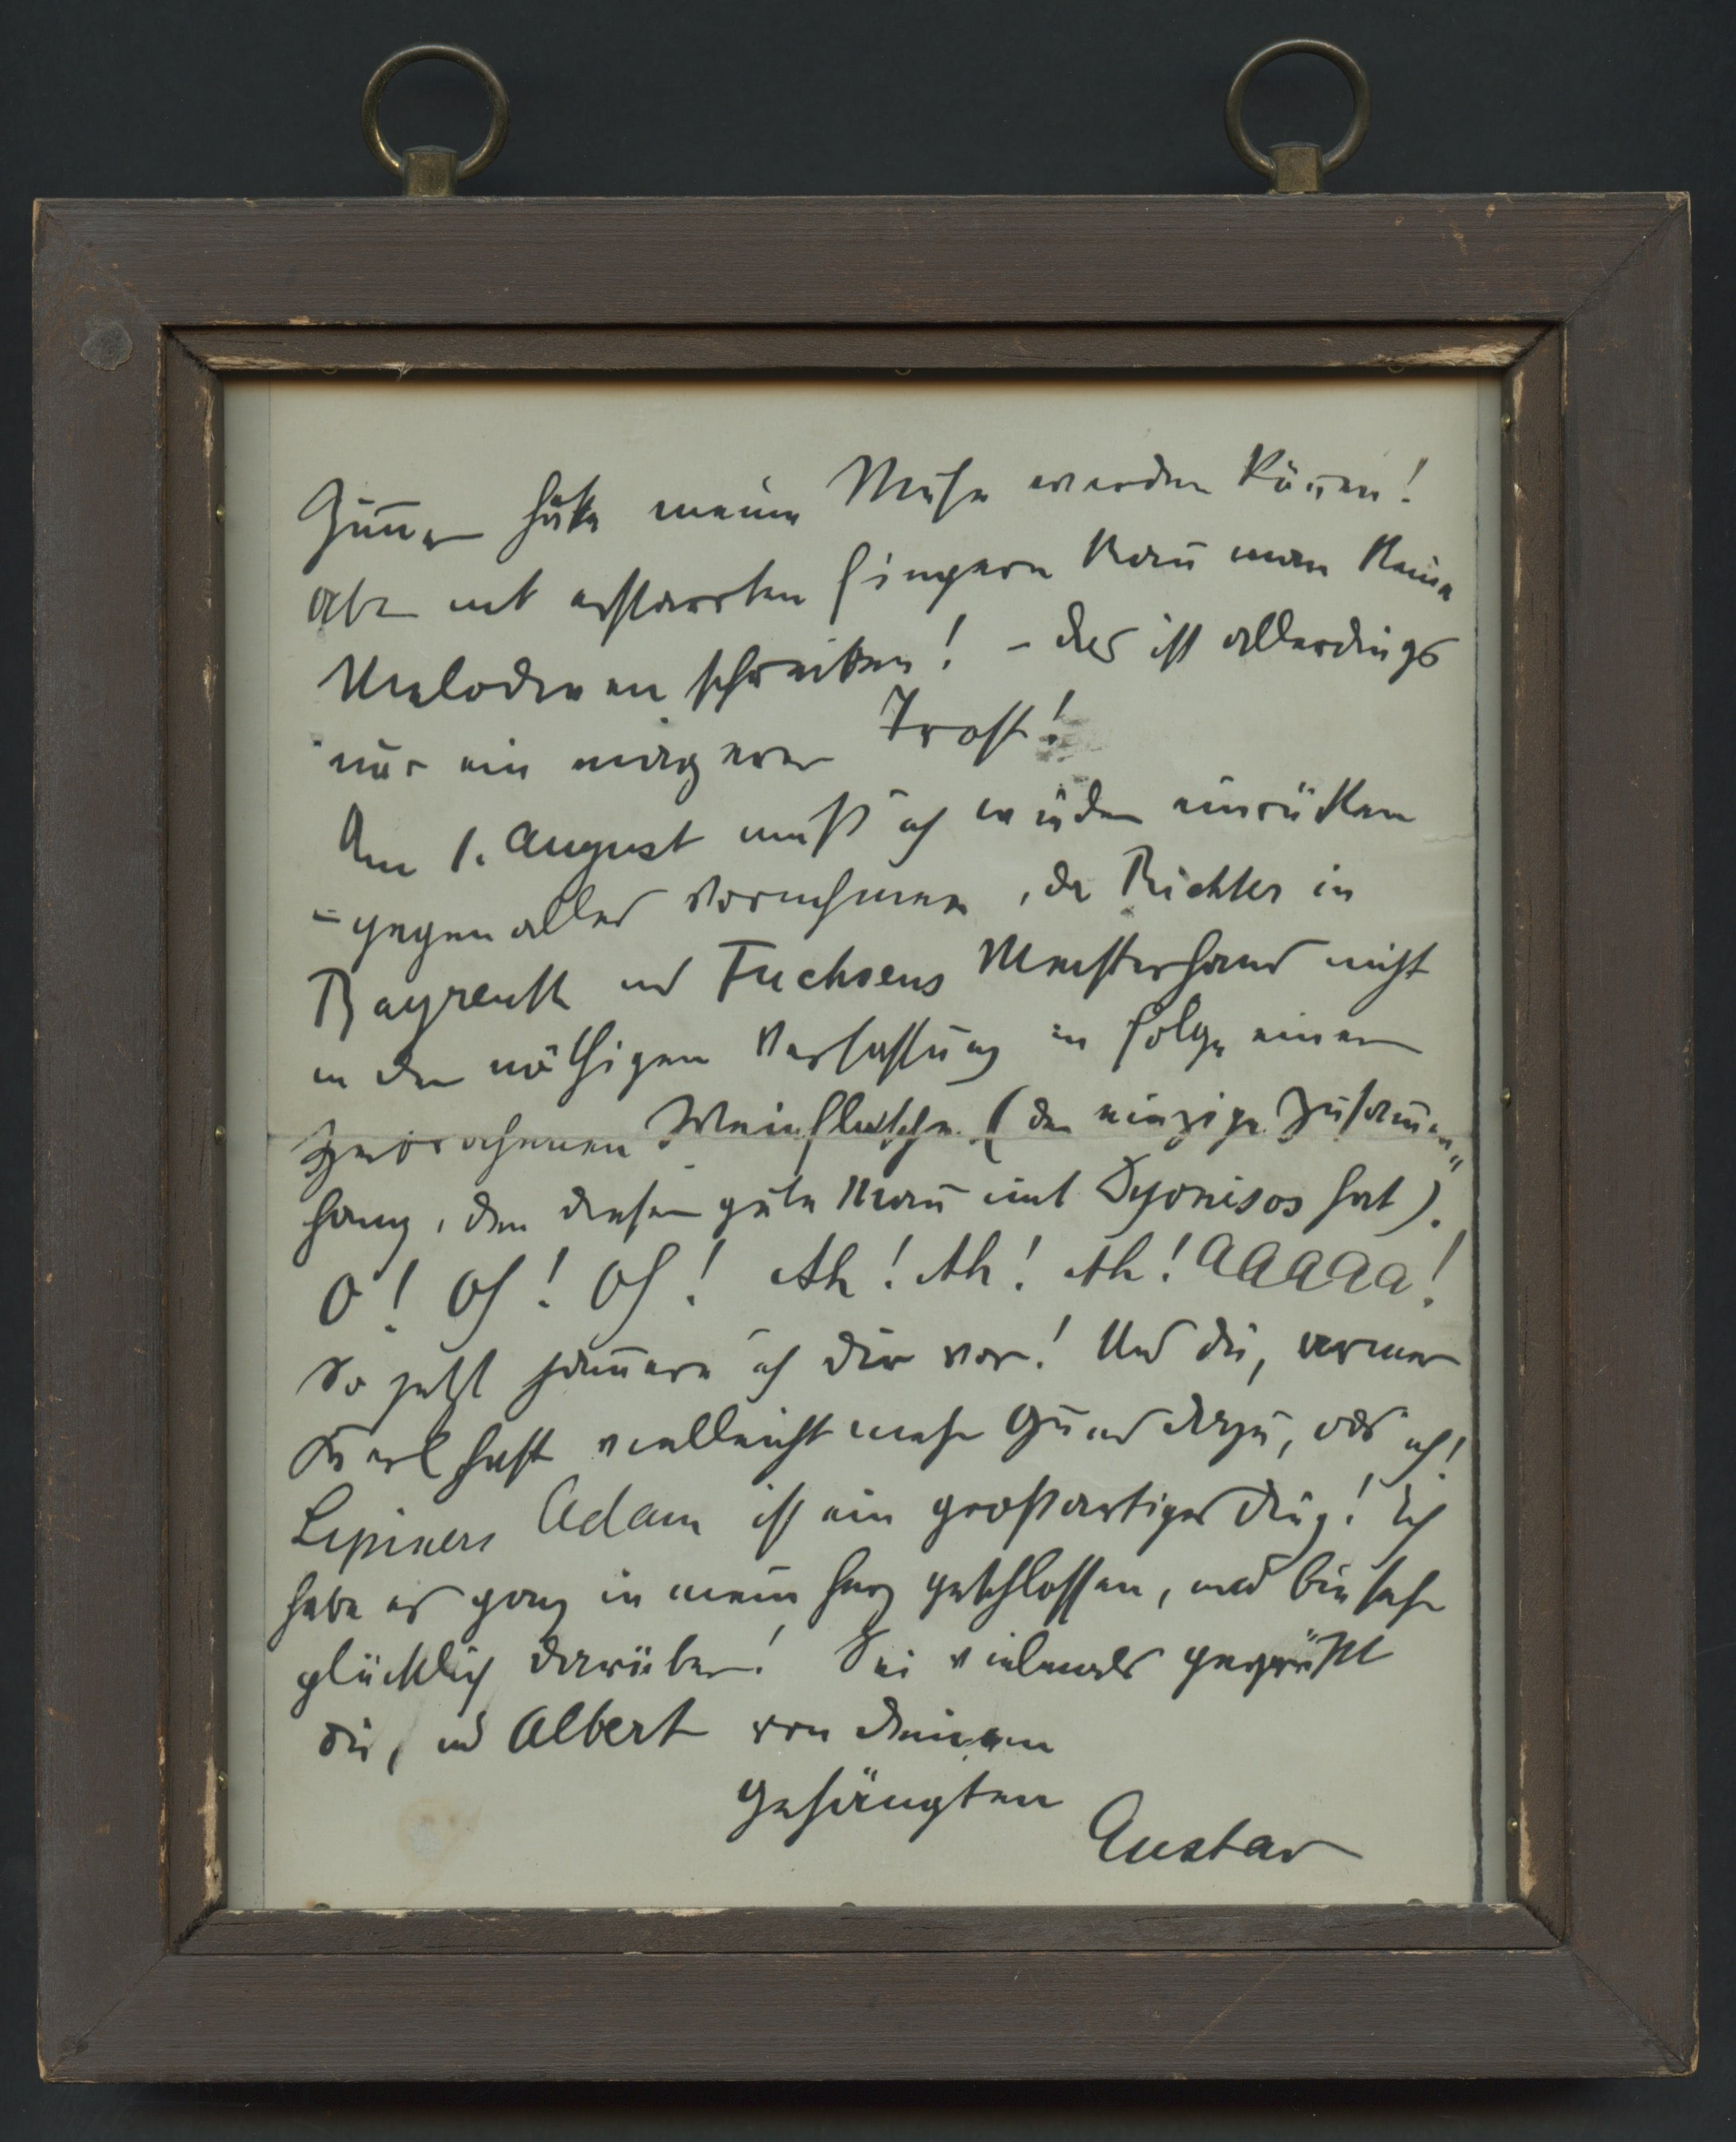 hätte meine Muse werden können!
Aber mit erstarrten Fingern kann man keine
Melodieen schreiben! – das ist allerdings
nur ein magerer Trost!
Am 1. August muß ich wieder einrücken
– gegen alles Vornehmen, da Richter in
Bayreuth und Fuchsens Meisterhand nicht
in der nöthigen Verfassung in Folge einer
zerbrochenen Weinflasche (der einzige Zusammen„
hang, den dieser gute Mann mit Dyonisos hat).
O! Oh! Oh! Ah! Ah! Ah! aaaaa!
So jetzt jammere ich dir vor! Und du, armer
Kerl hast vielleicht mehr Grund dazu, als ich!
Lipiners Adam ist ein großartiges Ding! Ich
habe es ganz in mein Herz geschlossen, und bin sehr
glücklich darüber! Sei vielmals gegrüßt
du, und Albert von deinem
Gustav